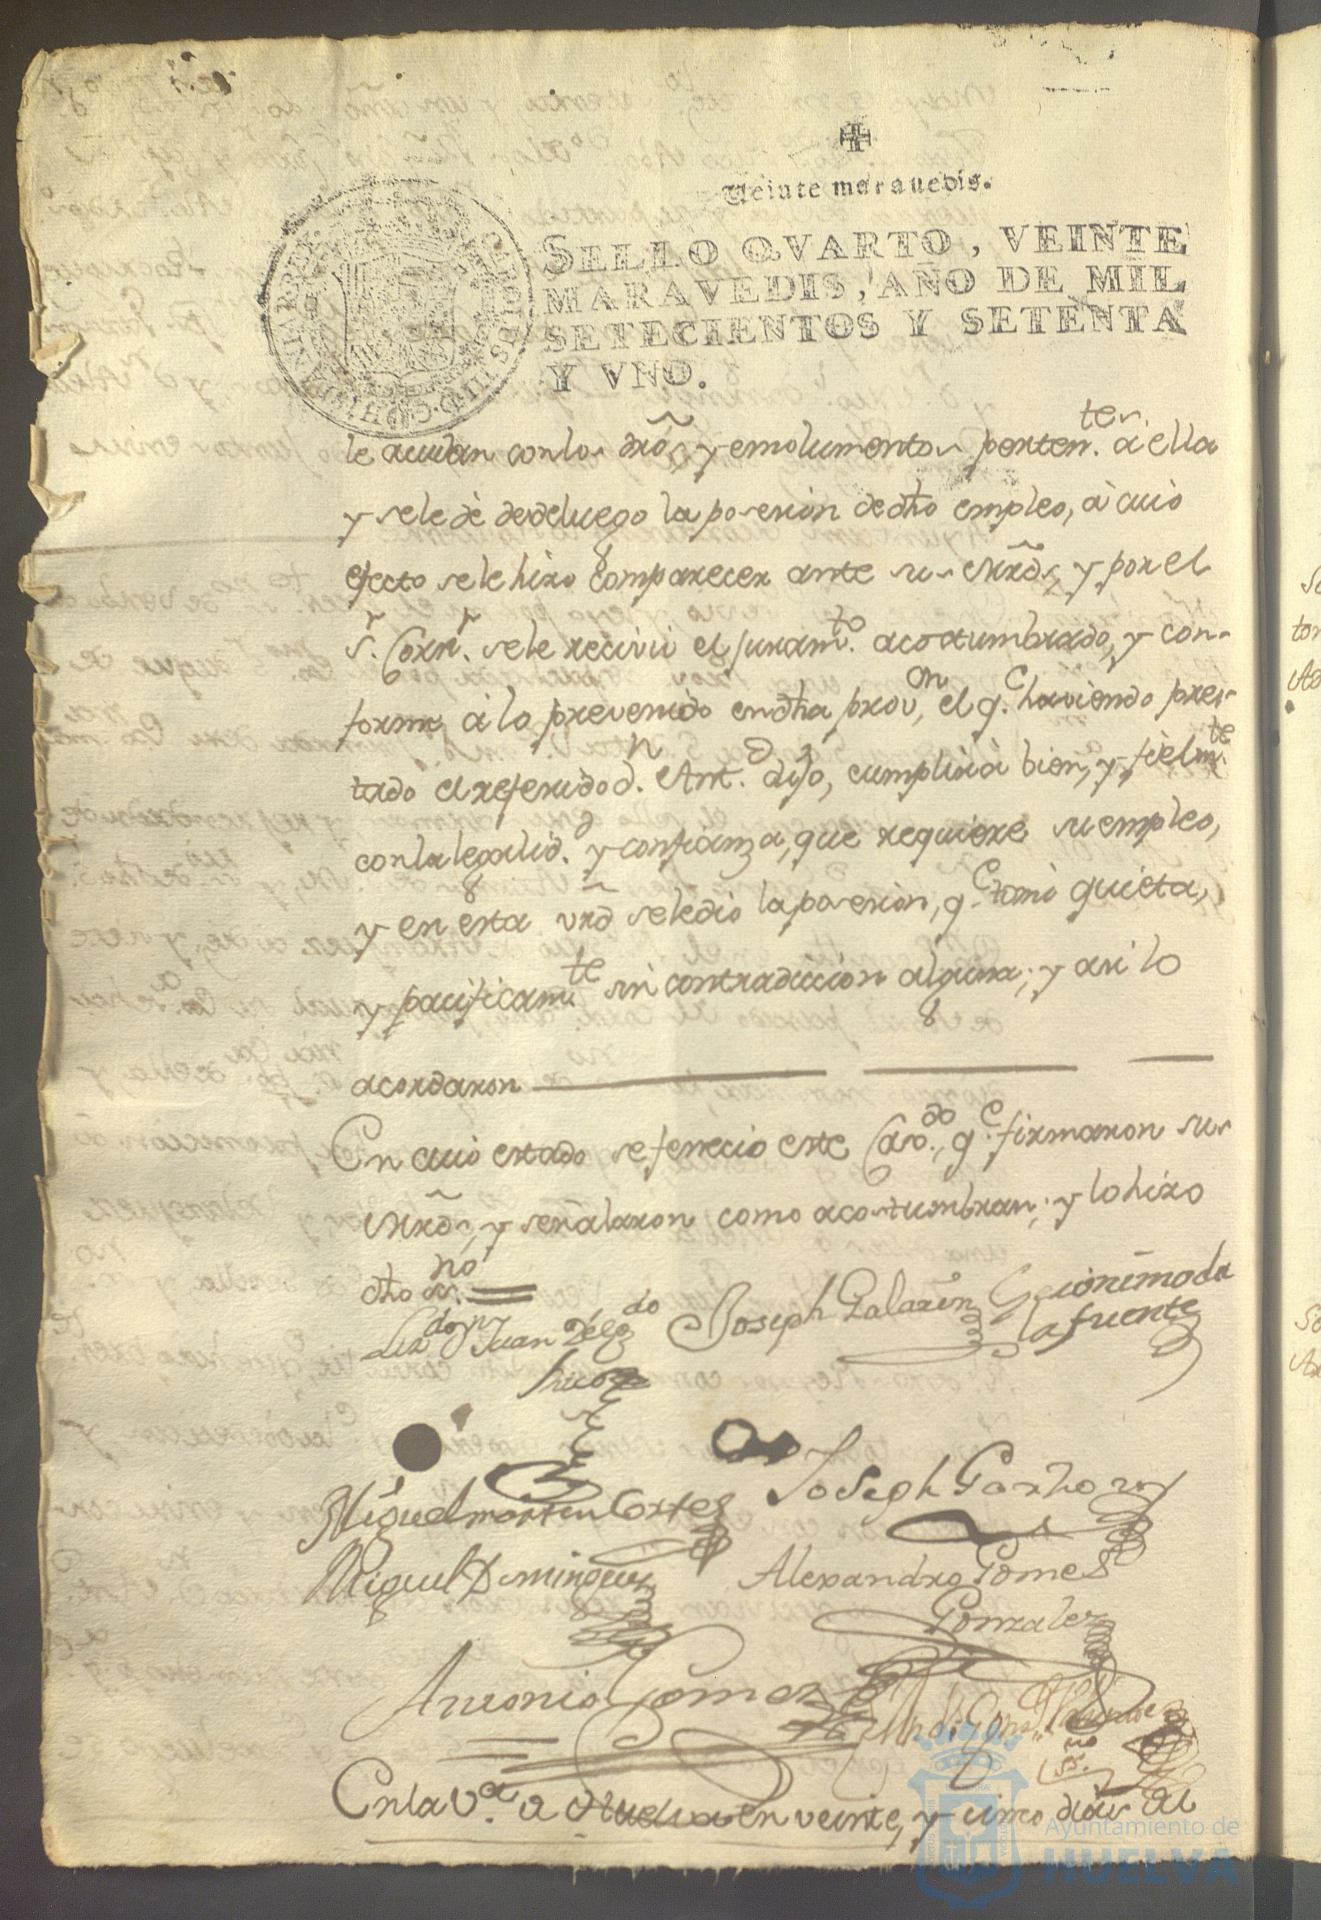 Veinte maravedis.
SELLO QVARTO, VEINTE
MARAVEDIS, AÑO DE MIL
SETECIENTOS Y SETENTA
Y VNO.
le acudan con los dr̃os, y emolumentos perten.tes a ella
y se le dè desde luego la posesion de dho empleo, à cuio
efecto se le hizo comparecer ante sus mr̃ds, y por el
s.r Corr.r se le recivió el juram.to acostumbrado, y con-
forme à lo prevenido en dha prov.on, el q.e haviendo pres-
tado el referido d.n Ant.o dijo, cumplirà bien, y fielm.te
con la legalid.d y confianza, que requiere su empleo,
y en esta vrd se le dio la posesion, q.e tomó quieta,
y pacificam.te sin contradiccion alguna; y asi lo
acordaron
En cuio estado se fenecio este Cav.do, q.e firmaron sus
mr̃ds, y señalaron como acostumbran; y lo hizo
dho s.no
Liz.do Dn Juan Delg.do
Joseph Galarin
Geronimo de
la fuente
Miguel Martin Cortes
Joseph Garzon
Miguel Dominguez
Alexandro Gomes
Gonzalez
Antonio Gomez
En la V.a de Huelva en veinte, y cinco dias del
Ayuntamiento de
HUELVA